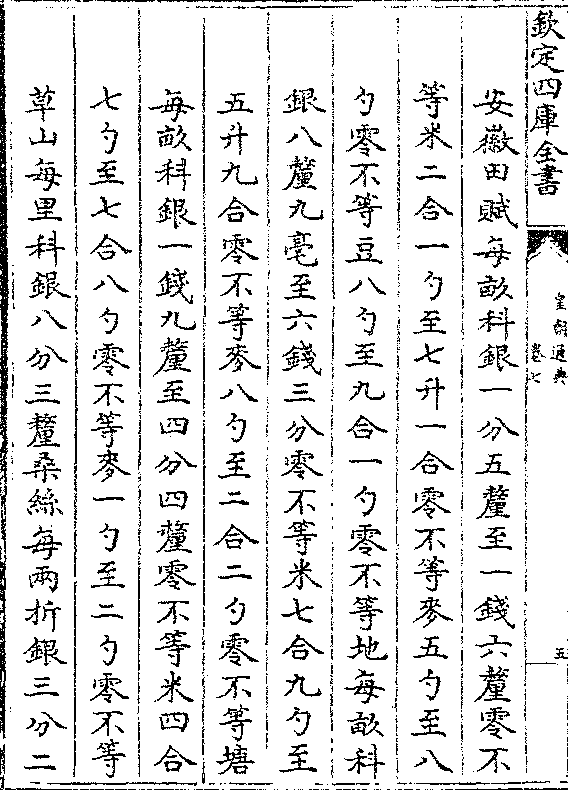 欽定四庫全書
皇朝通典
卷七
五
安徽田賦每畝科銀一分五釐至一錢六釐零不
等米二合一勺至七升一合零不等麥五勺至八
勺零不等豆八勺至九合一勺零不等地每畝科
銀八釐九毫至六錢三分零不等米七合九勺至
五升九合零不等麥八勺至二合二勺零不等塘
每畝科銀一錢九釐至四分四釐零不等米四合
七勺至七合八勺零不等麥一勺至二勺零不等
草山每里科銀八分三釐桑絲每兩折銀三分二